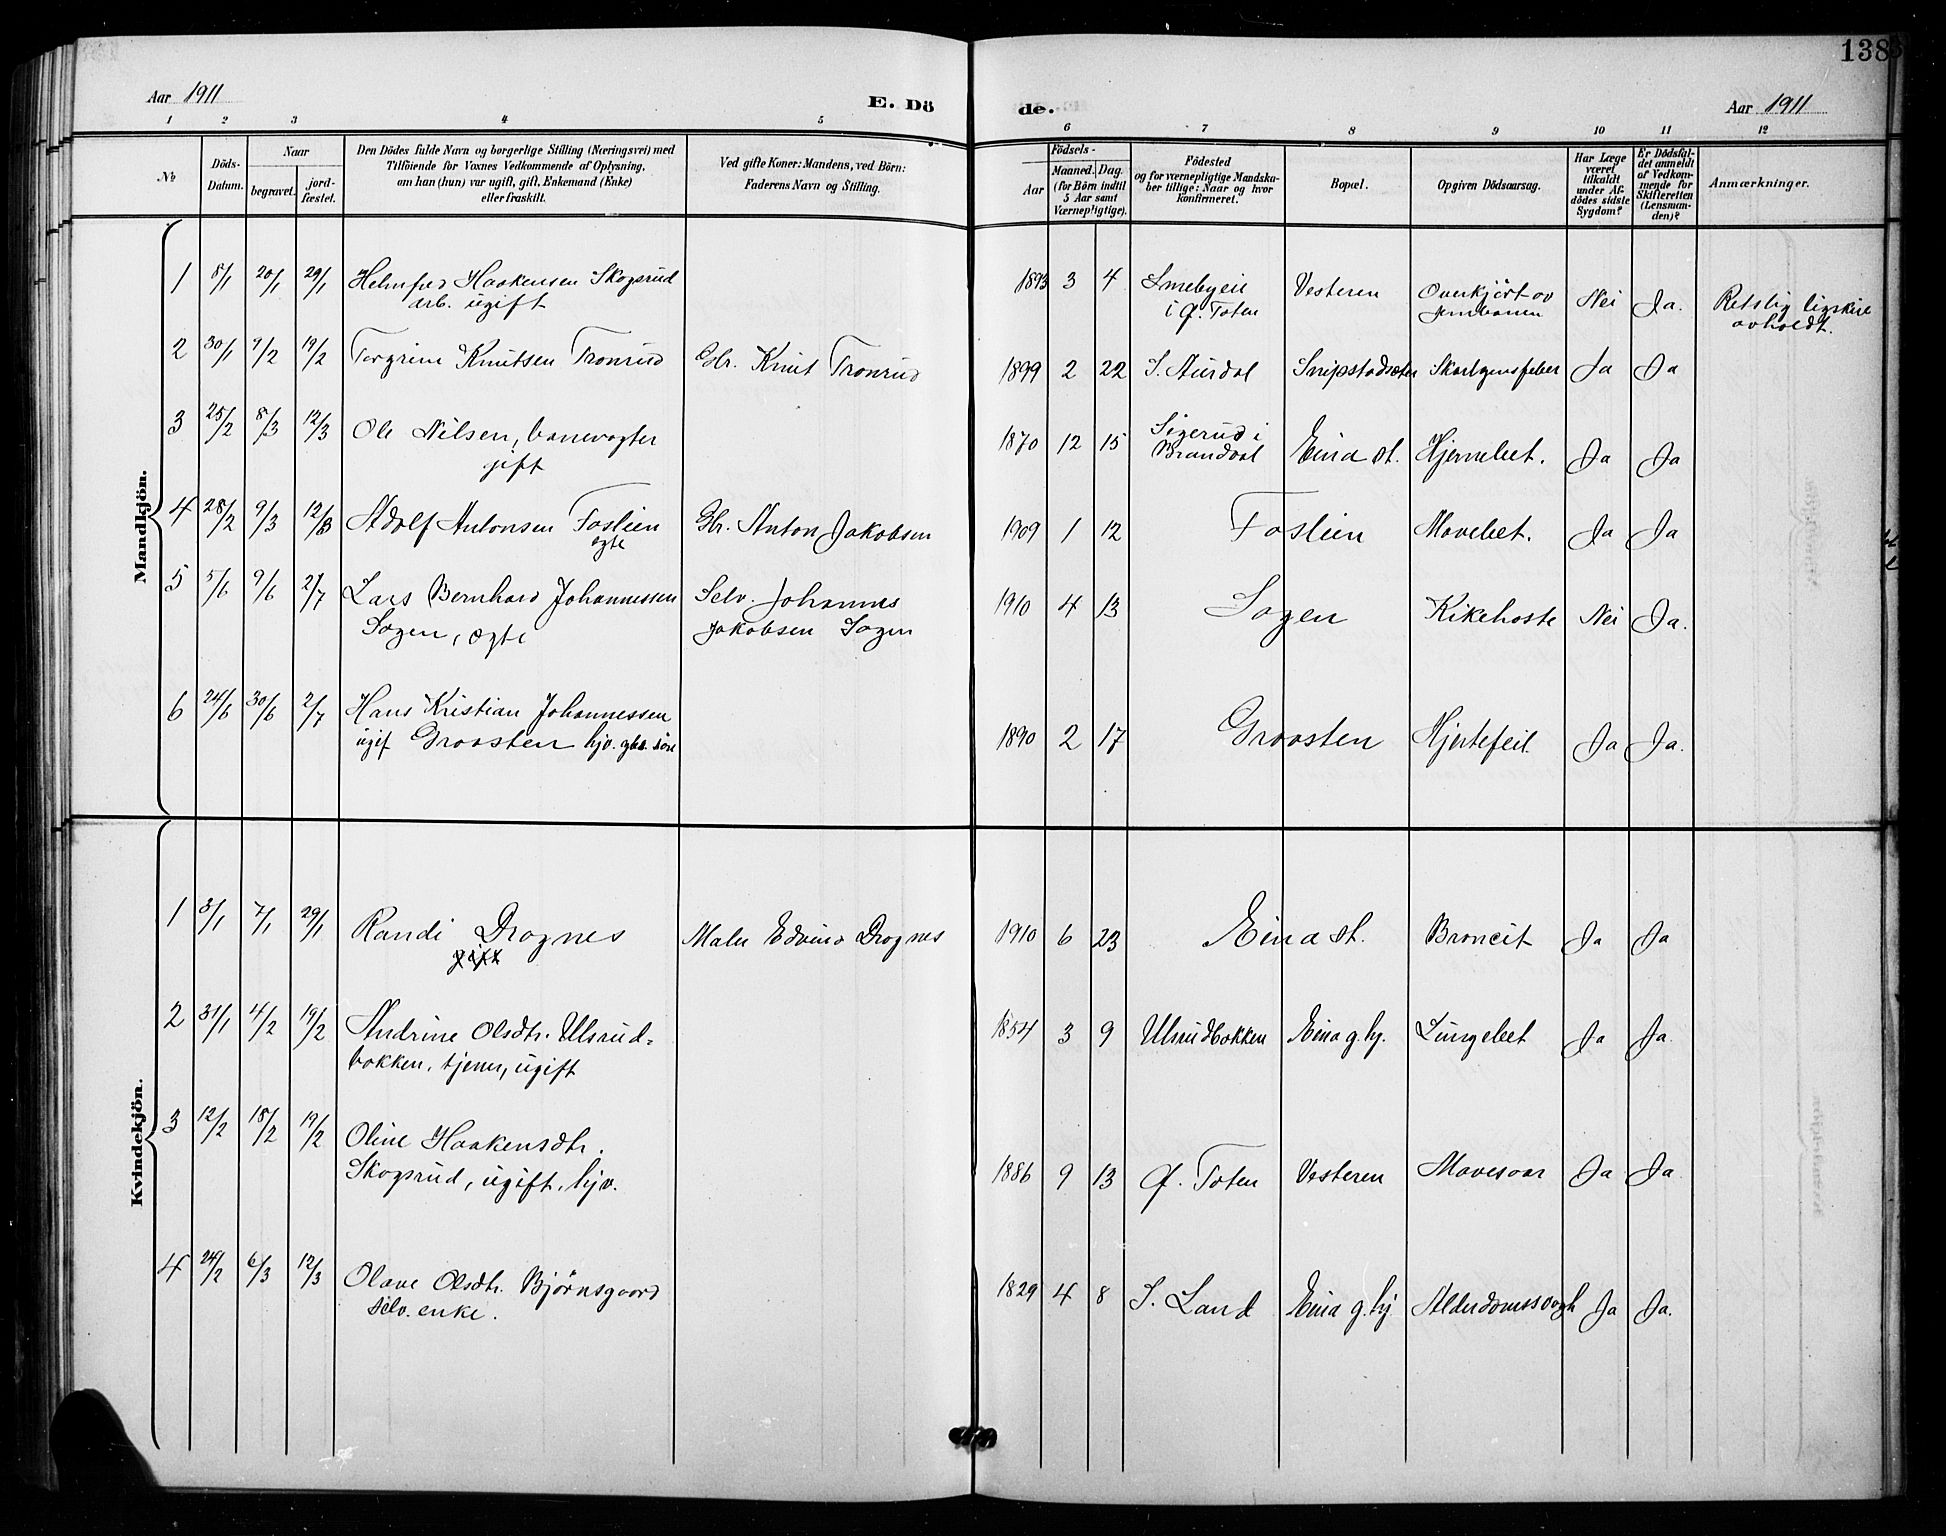 138
Aar 1911
E. Dö
de.
Aar 1911
1 2 3 4 5 6 7 8 9 10 11 12
№
Döds-
Datum.
Naar
begravet.
jord-
fæstet.
Den Dödes fulde Navn og borgerlige Stilling (Næringsvei) med
Tilföiende for Voxnes Vedkommende af Oplysning,
om han (hun) var ugift, gift, Enkemand (Enke)
eller fraskilt.
Ved gifte Koner: Mandens, ved Börn:
Faderens Navn og Stilling.
Födsels-
Aar
Maaned. Dag.
(for Börn indtil
5 Aar samt
Værnepligtige).
Födested
og for værnepligtige Mandska-
ber tillige: Naar og hvor
konfirmeret.
Bopæl.
Opgiven Dödsaarsag.
Har Læge
været
tilkaldt
under Af-
dödes sidste
Sygdom?
Er Dödsfal-
det anmeldt
af Vedkom-
mende for
Skifteretten
(Lensman-
den)?
Anmærkninger.
Mandkjön.
1 8/1 20/1 29/1 Helmfred Haakensen Skogsrud
arb. ugift
1893 3 4 Smebyeie
i Ø. Toten
Vesteren
Overkjört av
jernbanen
Nei Ja.
Retslig ligskue
avholdt.
2 30/1 9/2 19/2 Torgrim Knutsen Tronrud
Gbr. Knut Tronrud
1899 2 22 S. Aurdal Snipstadsæter Skarlagensfeber Ja Ja
3 25/2 8/3 12/3 Ole Nilsen, banevogter
gift
1870 12 15 Sigerud i
Brandval
Eina st. Hjernebet. Ja Ja
4 28/2 9/3 12/3 Adolf Antonsen Foslien
egte
Gbr. Anton Jakobsen
1909 1 12 Foslien Mavebet. Ja Ja
5 5/6 9/6 2/7 Lars Bernhard Johannessen
Sogen, egte
Selv. Johannes
Jakobsen Sogen
1910 4 13 Sogen Kikehoste Nei Ja.
6 24/6 30/6 2/7 Hans Kristian Johannessen
ugif Graasten hjv. gbr. søn
1890 2 17 Graasten Hjertefeil Ja Ja.
Kvindekjön.
1 3/1 7/1 29/1 Randi Dragnes
gift
Maler Edvind Dragnes
1910 6 23 Eina st. Broncit Ja Ja
2 31/1 4/2 19/2 Andrine Olsdtr. Ulsrud-
bakken, tjener, ugift
1854 3 9 Ulsrudbakken Eina g. hj. Lungebet Ja Ja.
3 12/2 18/2 19/2 Oline Haakensdtr.
Skogsrud, ugift, hjv.
1886 9 13 Ø. Toten Vesteren Mavesaar Ja Ja
4 24/2 6/3 12/3 Olave Olsdtr. Bjørnsgaard
selv. enke.
1829 4 8 S. Land Eina g. hj. Alderdomssvagh Ja Ja.